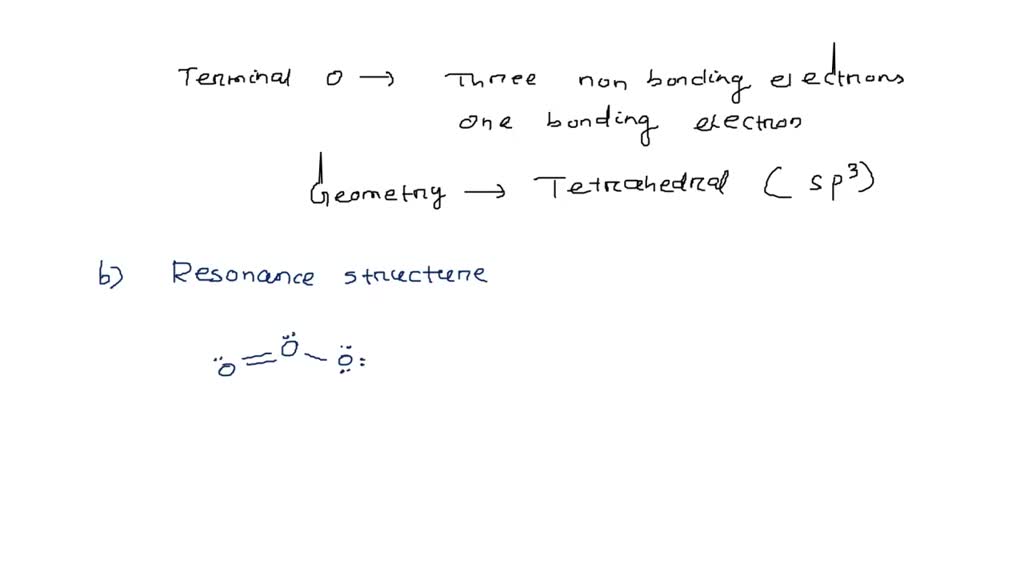 Terminal O → Three non bonding electrons
one bonding electron
Geometry → Tetrahedral ( sp³)
b) Resonance structure
Ö = Ö - Ö: